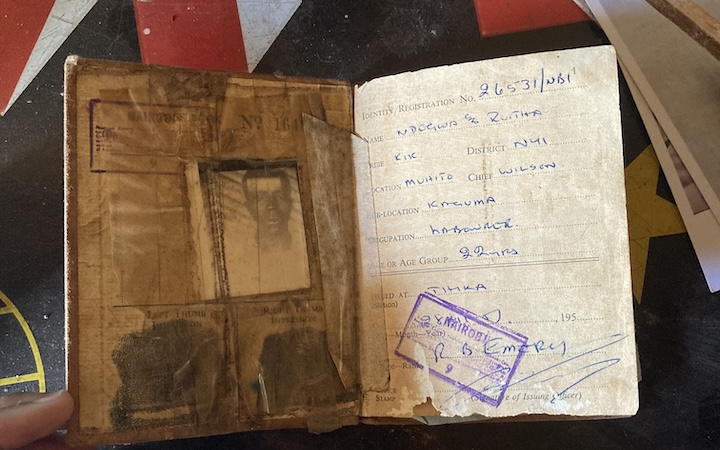 Nº 164
LEFT THUMB
RIGHT THUMB
IMPRESSION
IDENTITY/REGISTRATION No. 26531/NBI
NAME NDEGWA S/o RUITHA
KIK DISTRICT NYI
LOCATION MUHITO CHIEF WILSON
SUB-LOCATION KAGUMA
OCCUPATION LABOURER
OR AGE GROUP 22 YRS
AT THIKA
195
NAIROBI
R B EMERY
9
STAMP (Signature of Issuing Officer)